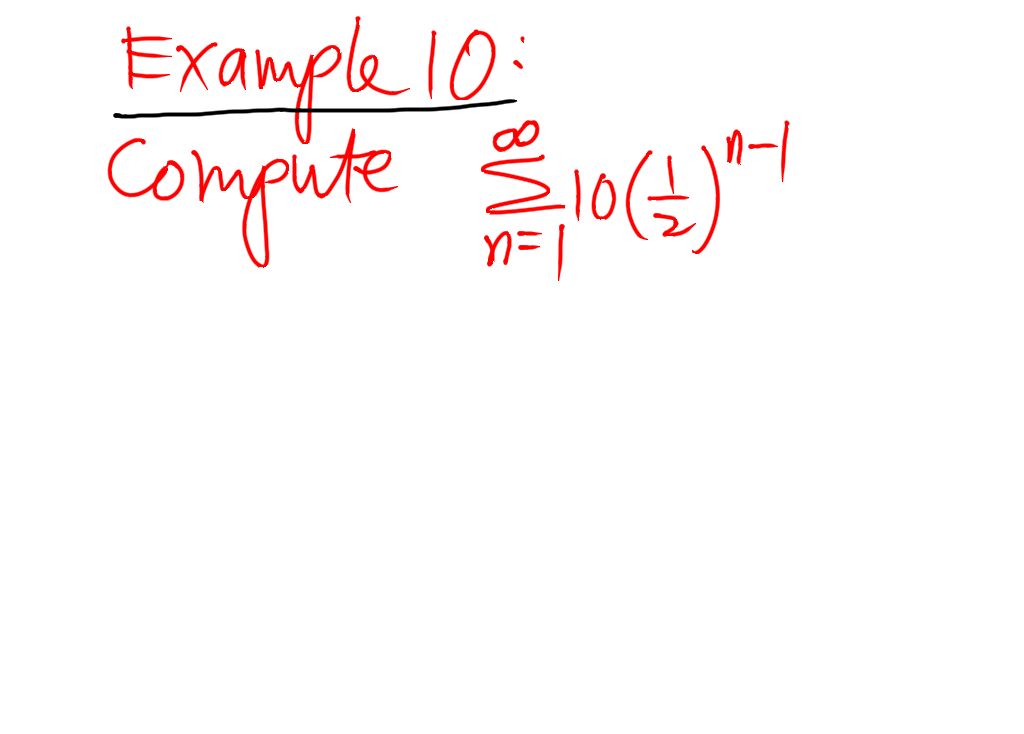 Example 10:
Compute $\sum_{n=1}^{\infty} 10\left(\frac{1}{2}\right)^{n-1}$